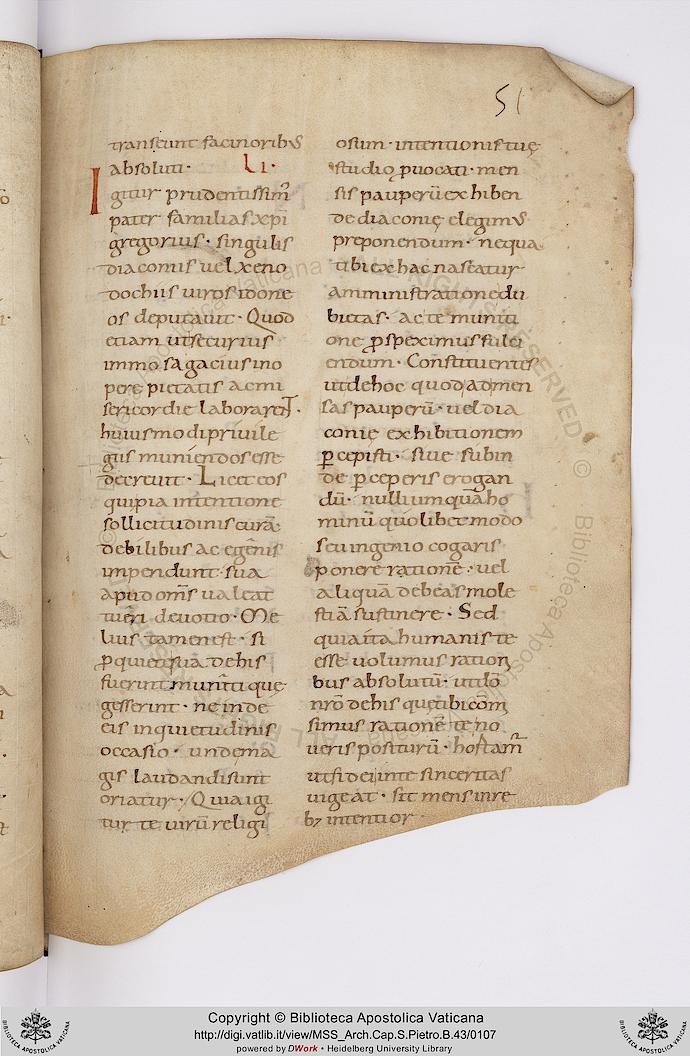 51
transeunt facinoribus
absoluti· LI·
Igitur prudentissim̄
pater familias xp̄i
gregorius· singulis
diaconiis uel xeno
dochiis uiros idone
os deputauit· Quod
etiam ut securius
immo sagacius in o
pere pietatis ac mi
sericordie laborarēt·
huiusmodi priuile
giis muniendos esse
decreuit· Licet eos
qui pia intentione
sollicitudinis curā
debilibus ac egenis
impendunt· sua
apud om̄s ualeat
tueri deuotio· Me
lius tamen est· si
p̱ quieti sua de his
fuerint muniti quę
gesserint· ne inde
eis inquietudinis
occasio· unde ma
gis laudandi sunt
oriatur· Quia igi
tur te uirū religi
osum· intentionis tuę
studio ꝓuocati· men
sis pauperū exhiben
de diaconię elegimus
preponendum· nequa
tibi ex hac nascatur
amministratione du
bitas· ac te muniti
one ꝓspeximus fulci
endum· Constituentes
ut de hoc quod ad men
sas pauperū· uel dia
conię exhibitionem
ꝑcepisti· siue subin
de ꝑceperis erogan
dū· nulli umquā ho
minū quolibet modo
seu ingenio cogaris
ponere rationē· uel
aliquā debeas mole
stiā sustinere· Sed
quia ita humanis te
esse uolumus ration
bus absolutū· ut dō
nrō de his quę tibi cōm
simus rationē te no
ueris positurū· hostam̄
ut fidei in te sinceritas
uigeat· sit mens in re
bȝ intentior·
Copyright © Biblioteca Apostolica Vaticana
http://digi.vatlib.it/view/MSS_Arch.Cap.S.Pietro.B.43/0107
powered by DWork • Heidelberg University Library